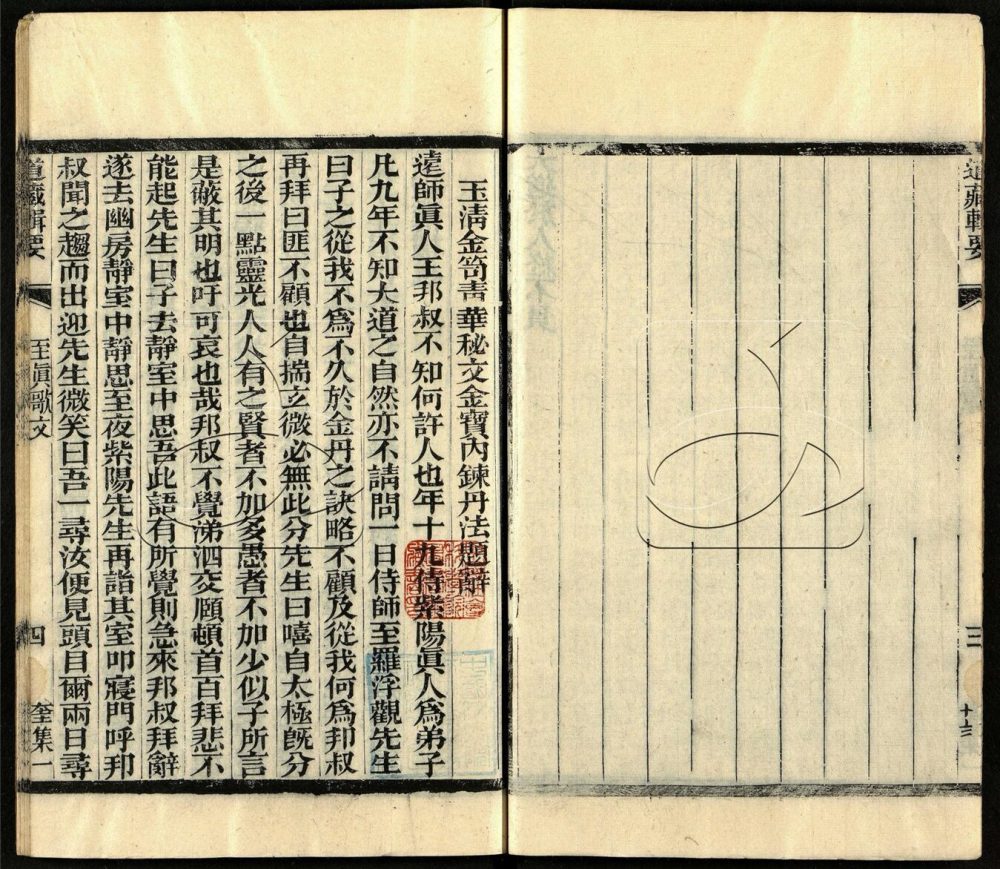 道藏輯要
三
玉清金笥青華秘文金寶內鍊丹法題辭
遠師眞人王邦叔不知何許人也年十九侍紫陽眞人爲弟子
凡九年不知大道之自然亦不請問一日侍師至羅浮觀先生
曰子之從我不爲不久於金丹之訣略不顧及從我何爲邦叔
再拜曰匪不顧也自揣玄微必無此分先生曰嘻自太極旣分
之後一點靈光人人有之賢者不加多愚者不加少似子所言
是蔽其明也吁可哀也哉邦叔不覺涕泗交頤頓首百拜悲不
能起先生曰子去靜室中思吾此語有所覺則急來邦叔拜辭
遂去幽房靜室中靜思至夜紫陽先生再詣其室叩寢門呼邦
叔聞之趨而出迎先生微笑曰吾一尋汝便見頭目爾兩日尋
道藏輯要
至眞歌文
四
奎集一